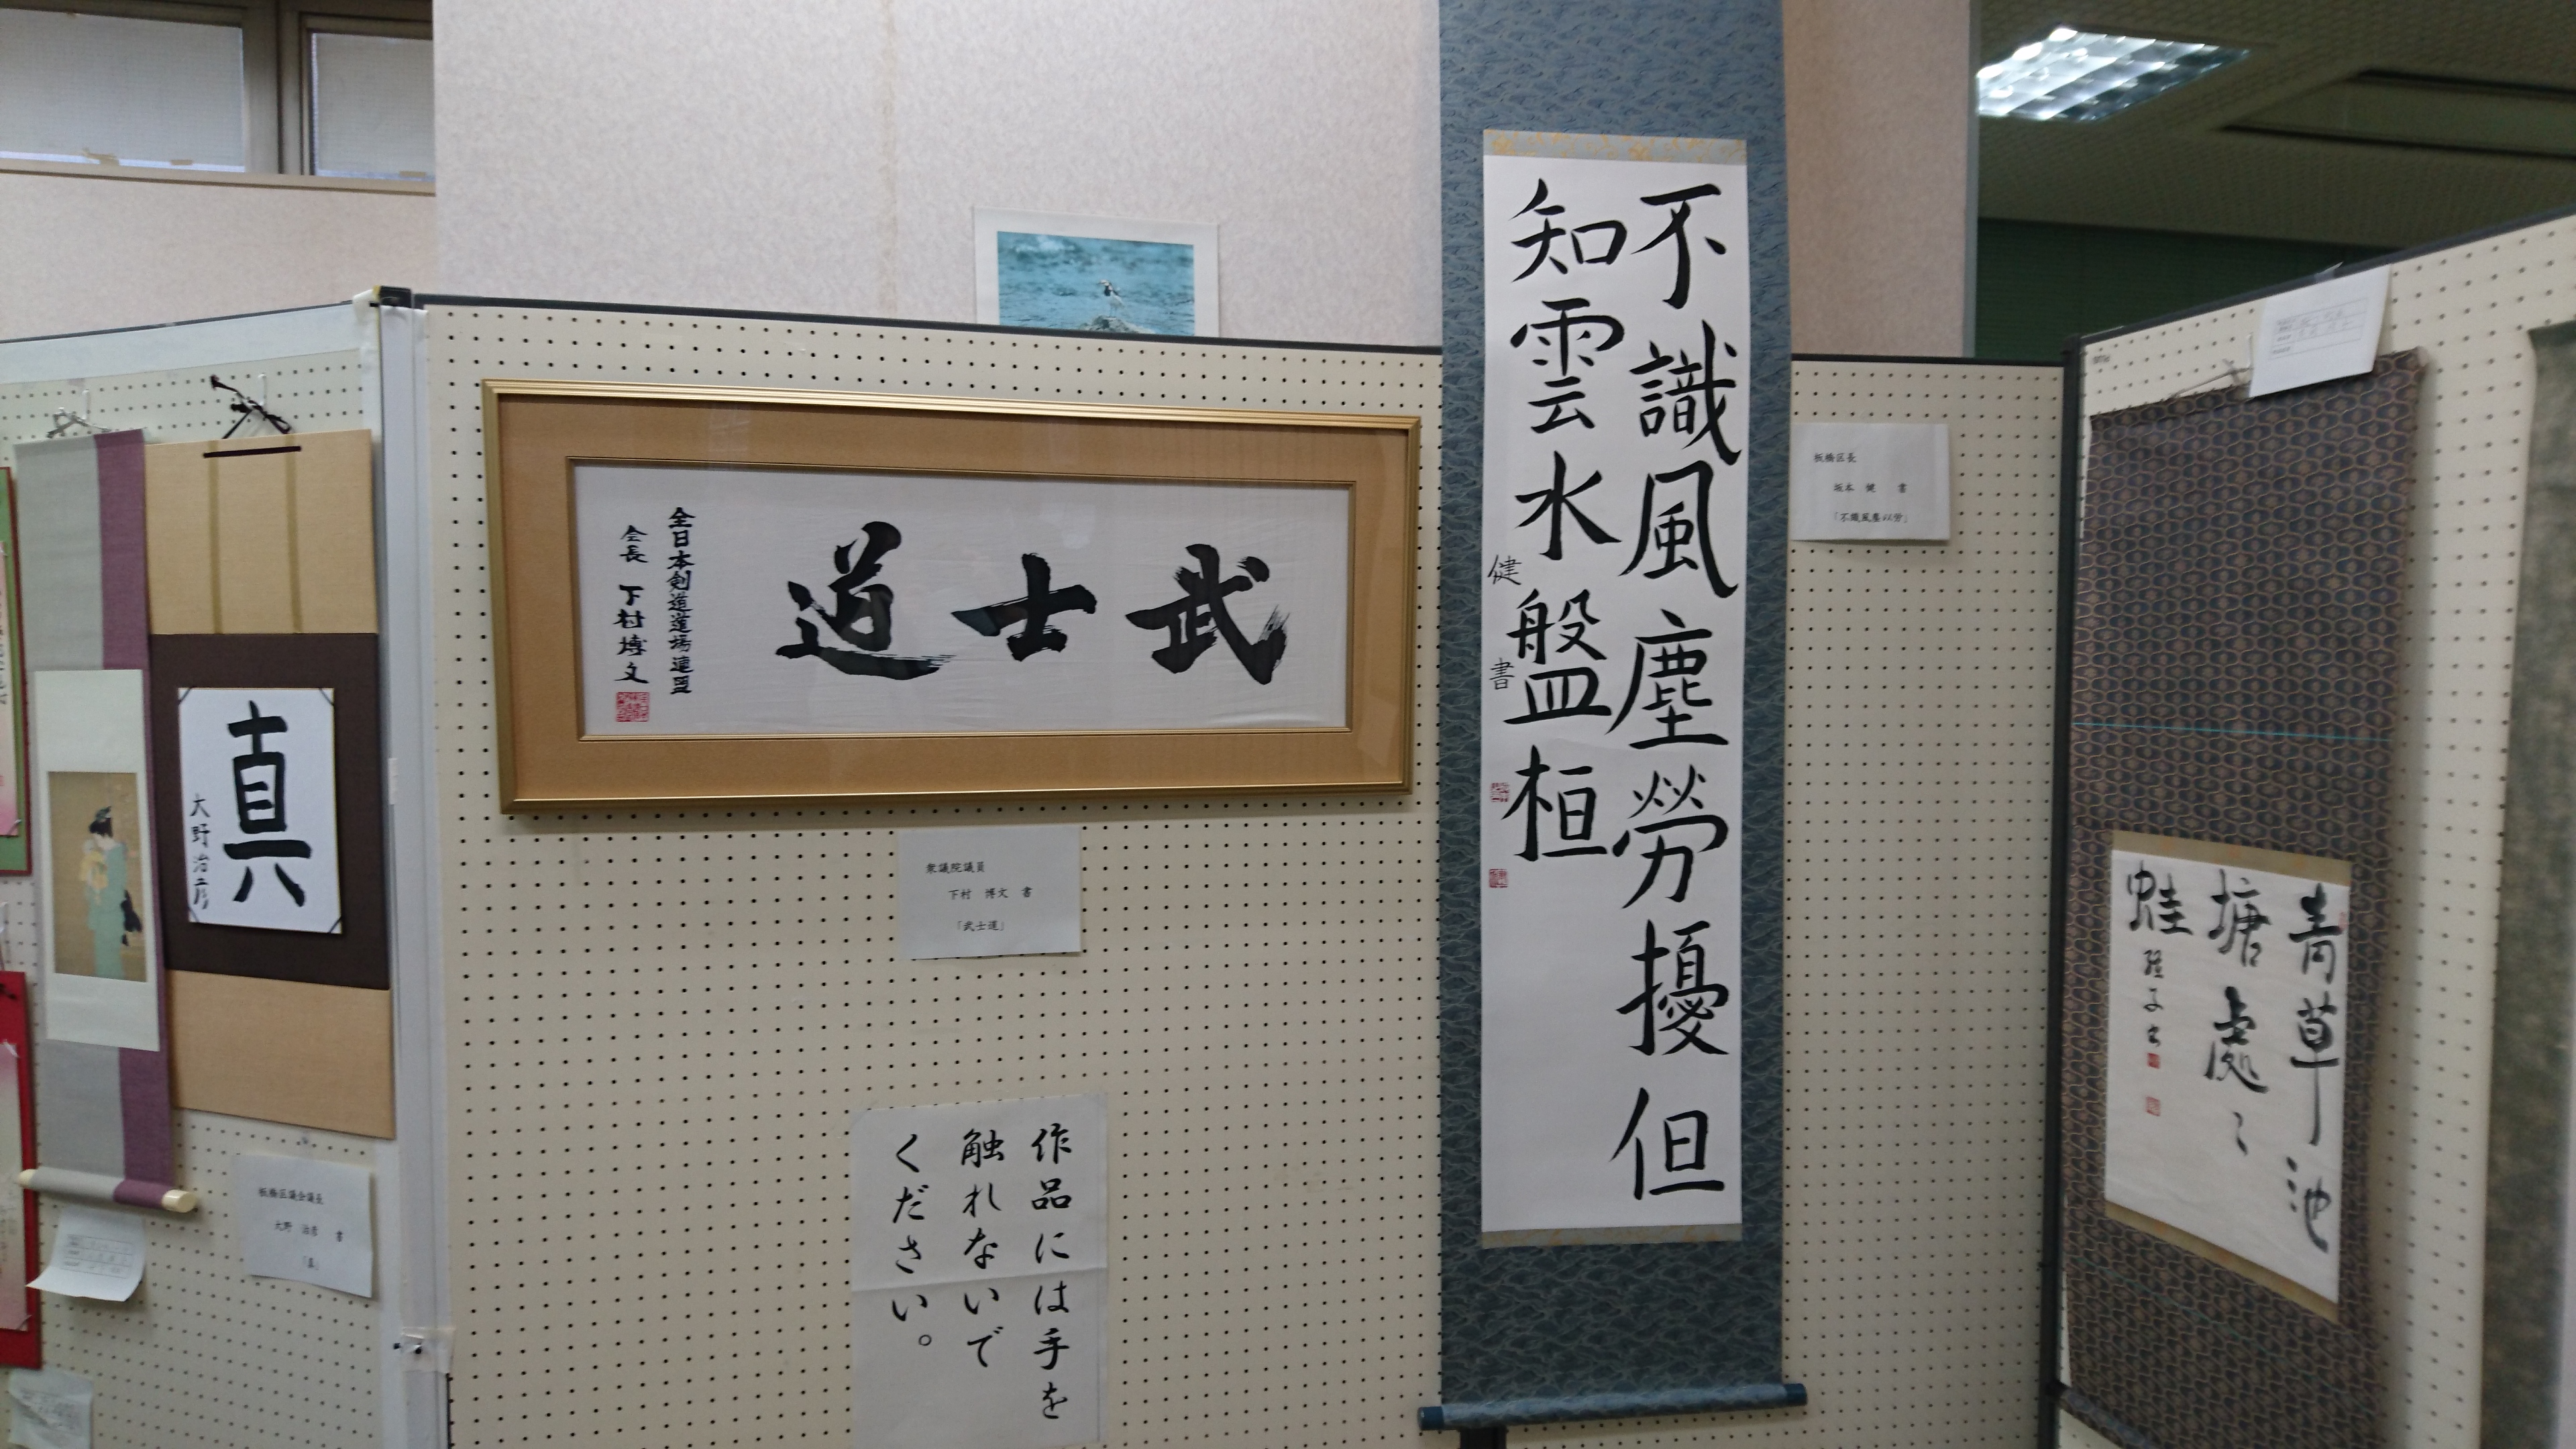 真
大野治彦
板橋区議会議長
大野 治彦 書
「真」
武士道
全日本剣道道場連盟
会長 下村博文
衆議院議員
下村 博文 書
「武士道」
作品には手を
触れないで
ください。
不識風塵勞擾但
知雲水盤桓
健書
板橋区長
坂本 健 書
「不識風塵以労」
青草池
塘處〻
蛙